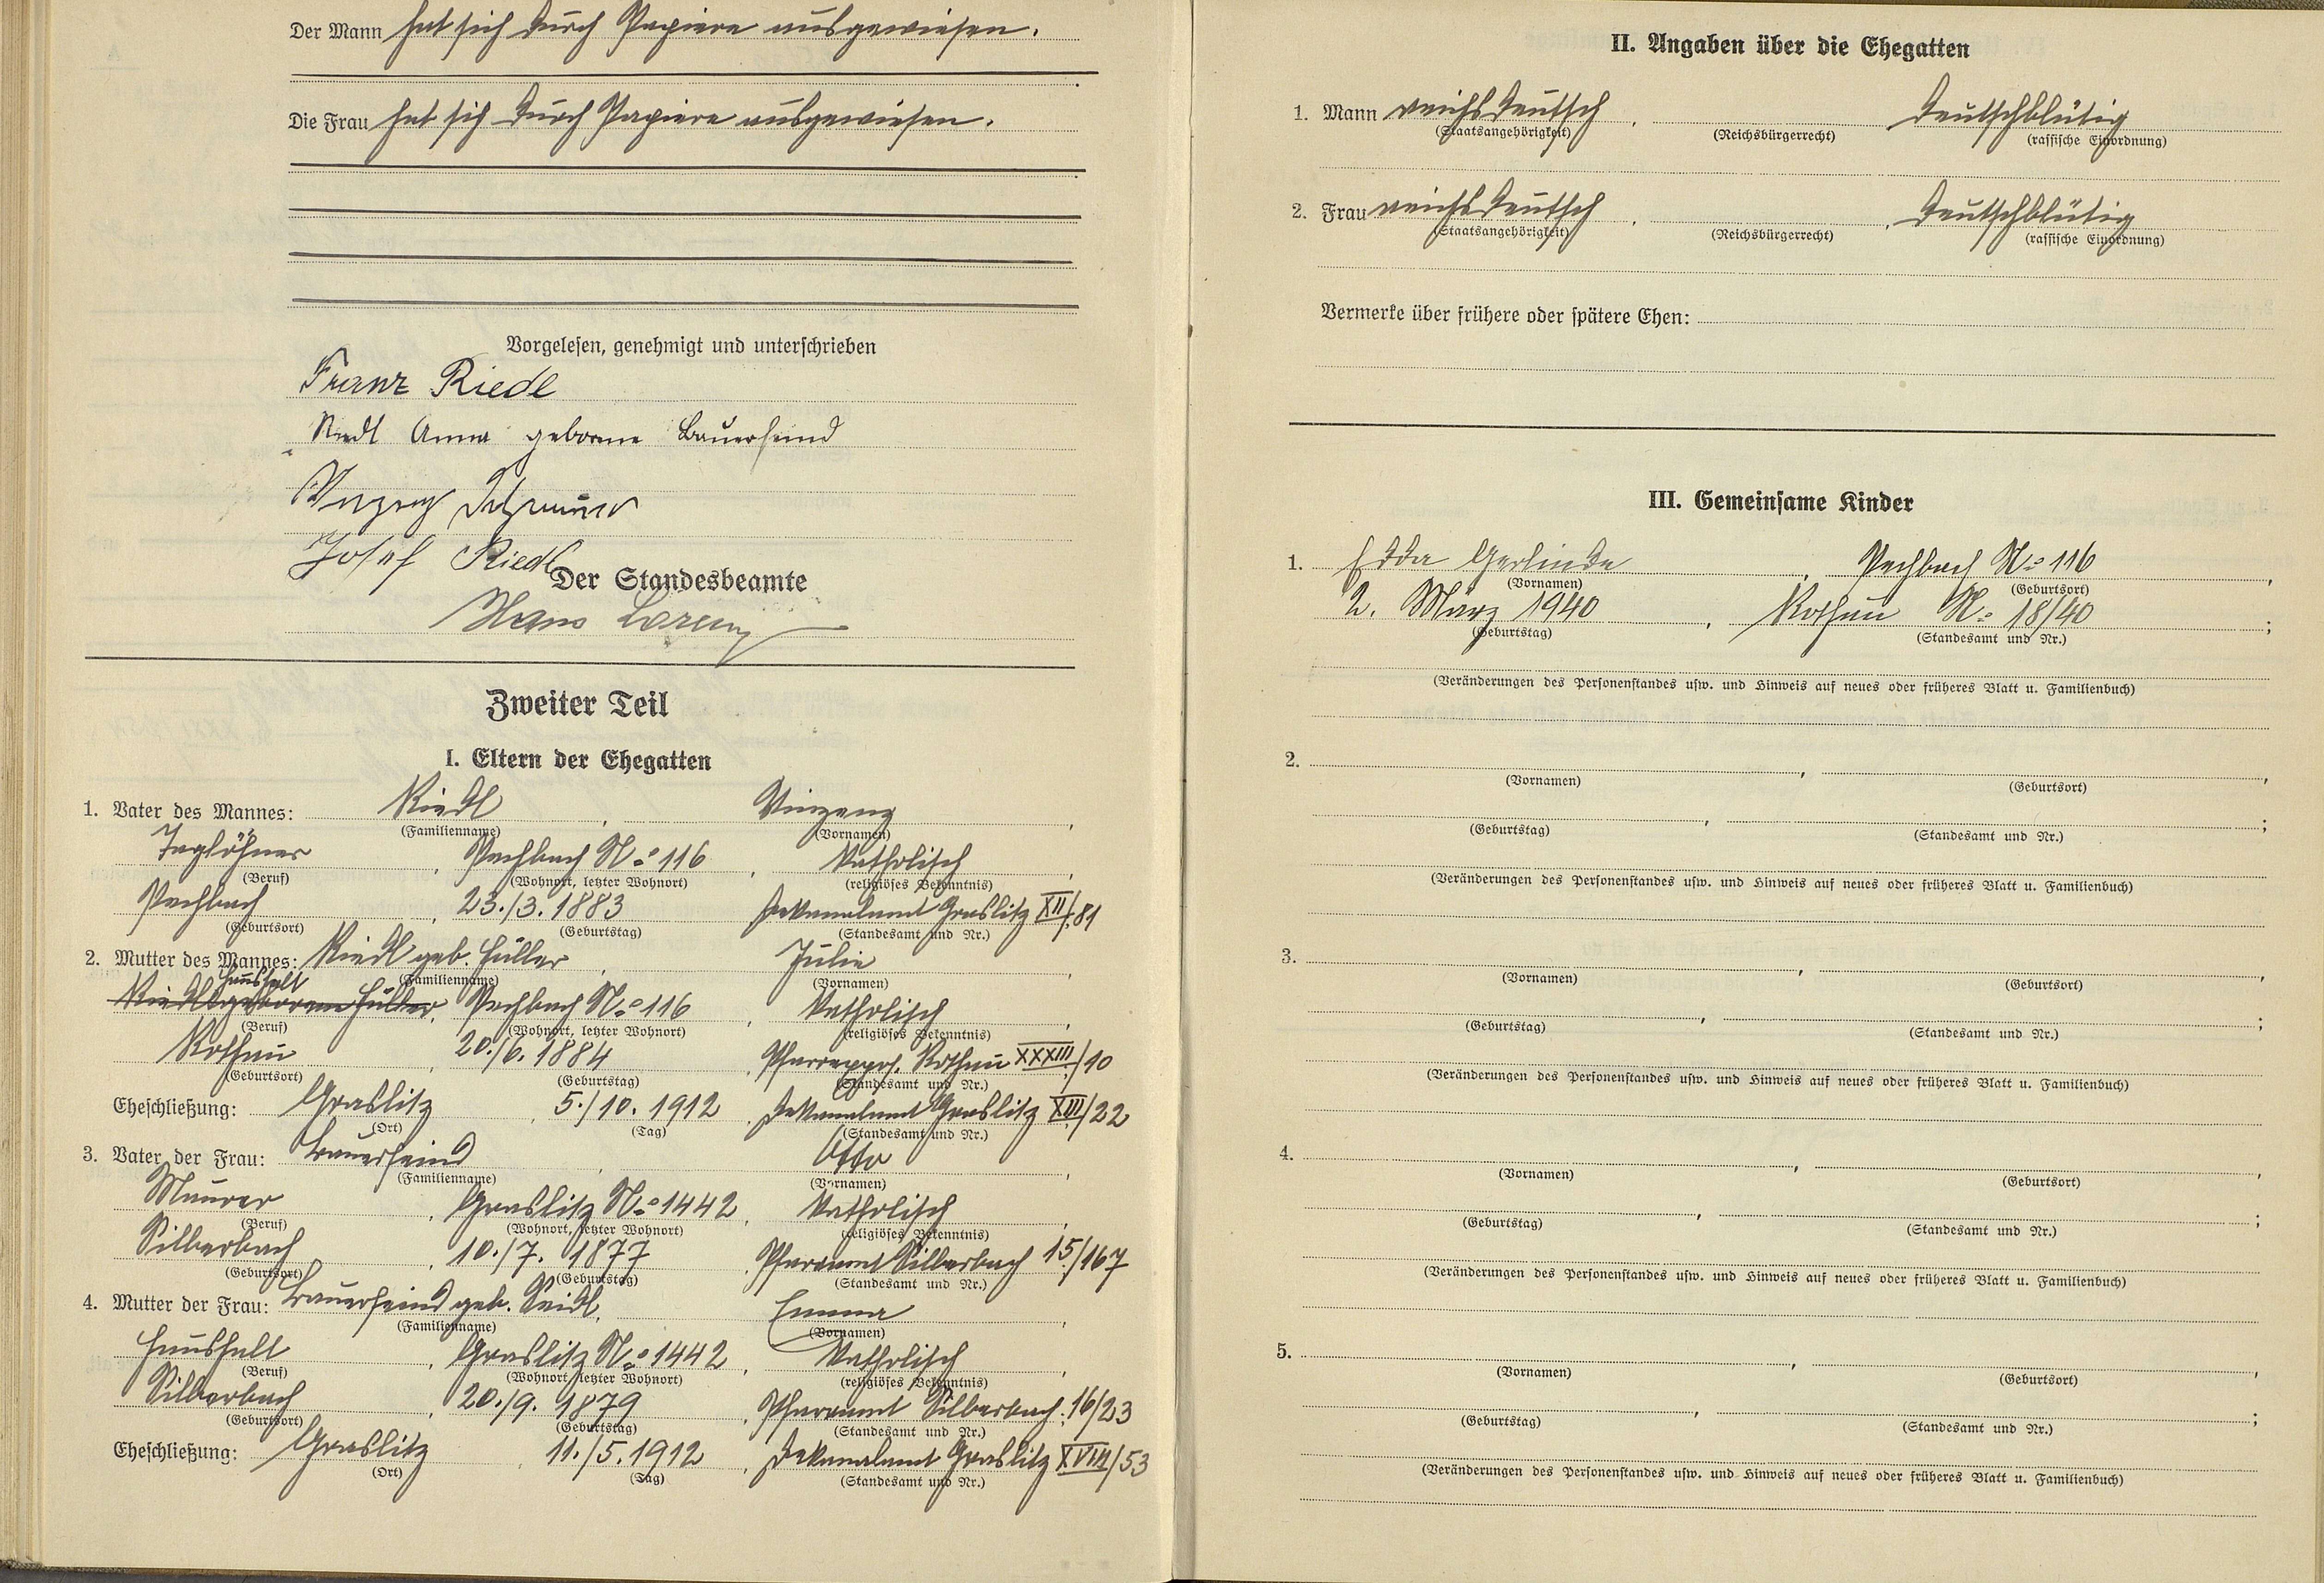 Der Mann hat sich durch Papiere ausgewiesen.
Die Frau hat sich durch Papiere ausgewiesen.
Vorgelesen, genehmigt und unterschrieben
Franz Riedl
Riedl Anna geborene Bauerfeind
Josef Riedl
Der Standesbeamte
Hans Lorenz
Zweiter Teil
I. Eltern der Ehegatten
1. Vater des Mannes: Riedl, Vinzenz,
(Familienname) (Vornamen)
Taglöhner, Pechbach No 116, katholisch,
(Beruf) (Wohnort, letzter Wohnort) (religiöses Bekenntnis)
Pechbach, 23./3. 1883 Dekanalamt Graslitz XII/81
(Geburtsort) (Geburtstag) (Standesamt und Nr.)
2. Mutter des Mannes: Riedl geb. Füller, Julie,
(Familienname) (Vornamen)
Haushalt
Riedl geborene Füller, Pechbach No 116, katholisch,
(Beruf) (Wohnort, letzter Wohnort) (religiöses Bekenntnis)
Rothau, 20./6. 1884, Pfarrexpos. Rothau XXXIII/10
(Geburtsort) (Geburtstag) (Standesamt und Nr.)
Eheschließung: Graslitz, 5./10. 1912, Dekanalamt Graslitz XIII/22
(Ort) (Tag) (Standesamt und Nr.)
3. Vater der Frau: Bauerfeind, Otto,
(Familienname) (Vornamen)
Maurer, Graslitz No 1442, katholisch,
(Beruf) (Wohnort, letzter Wohnort) (religiöses Bekenntnis)
Silberbach, 10./7. 1877, Pfarramt Silberbach 15/167
(Geburtsort) (Geburtstag) (Standesamt und Nr.)
4. Mutter der Frau: Bauerfeind geb. Seidl, Emma,
(Familienname) (Vornamen)
Haushalt, Graslitz No 1442, katholisch,
(Beruf) (Wohnort, letzter Wohnort) (religiöses Bekenntnis)
Silberbach, 20./9. 1879, Pfarramt Silberbach 16/23
(Geburtsort) (Geburtstag) (Standesamt und Nr.)
Eheschließung: Graslitz, 11./5. 1912, Dekanalamt Graslitz XVIII/53
(Ort) (Tag) (Standesamt und Nr.)
II. Angaben über die Ehegatten
1. Mann reichsdeutsch, deutschblütig
(Staatsangehörigkeit) (Reichsbürgerrecht) (rassische Einordnung)
2. Frau reichsdeutsch, deutschblütig
(Staatsangehörigkeit) (Reichsbürgerrecht) (rassische Einordnung)
Vermerke über frühere oder spätere Ehen:
III. Gemeinsame Kinder
1. Edda Gerlinde, Pechbach No 116,
(Vornamen) (Geburtsort)
2. März 1940, Rothau No 18/40;
(Geburtstag) (Standesamt und Nr.)
(Veränderungen des Personenstandes usw. und Hinweis auf neues oder früheres Blatt u. Familienbuch)
2. , ,
(Vornamen) (Geburtsort)
, ;
(Geburtstag) (Standesamt und Nr.)
(Veränderungen des Personenstandes usw. und Hinweis auf neues oder früheres Blatt u. Familienbuch)
3. , ,
(Vornamen) (Geburtsort)
, ;
(Geburtstag) (Standesamt und Nr.)
(Veränderungen des Personenstandes usw. und Hinweis auf neues oder früheres Blatt u. Familienbuch)
4. , ,
(Vornamen) (Geburtsort)
, ;
(Geburtstag) (Standesamt und Nr.)
(Veränderungen des Personenstandes usw. und Hinweis auf neues oder früheres Blatt u. Familienbuch)
5. , ,
(Vornamen) (Geburtsort)
, ;
(Geburtstag) (Standesamt und Nr.)
(Veränderungen des Personenstandes usw. und Hinweis auf neues oder früheres Blatt u. Familienbuch)